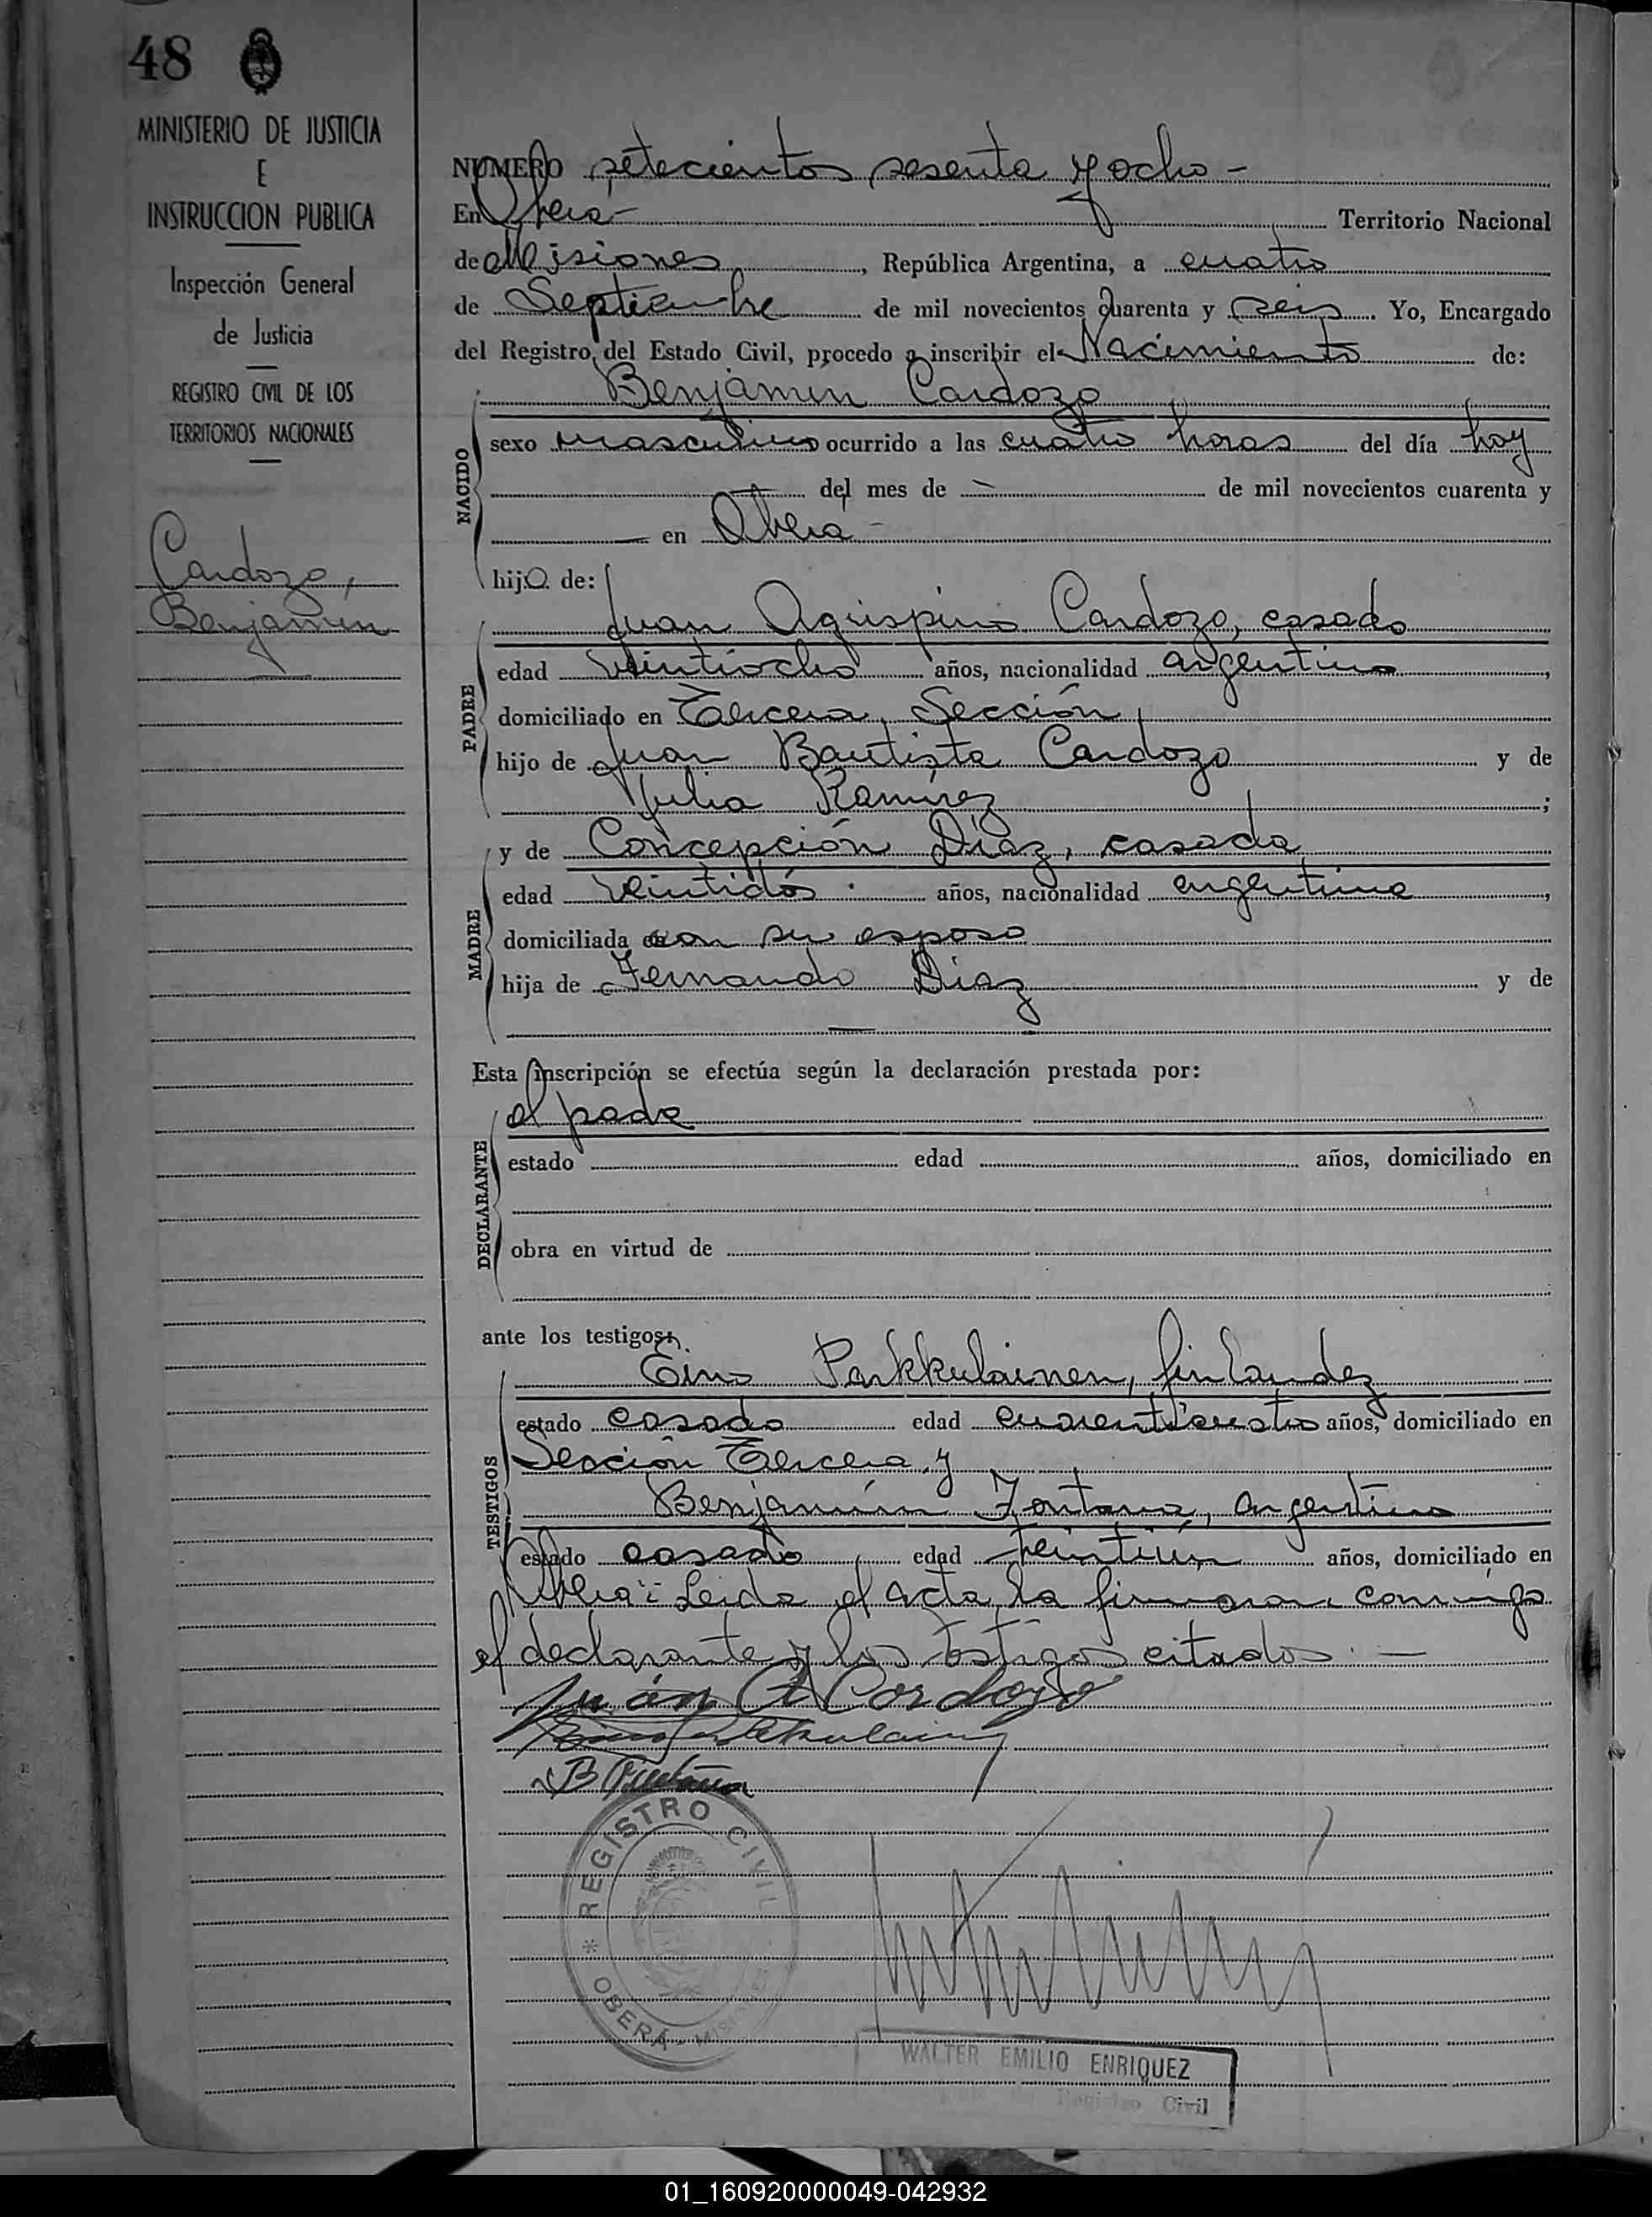 48
MINISTERIO DE JUSTICIA
E
INSTRUCCION PUBLICA
Inspección General
de Justicia
REGISTRO CIVIL DE LOS
TERRITORIOS NACIONALES
Cardozo,
Benjamín
NUMERO setecientos sesenta y ocho -
En Oberá - Territorio Nacional
de Misiones, República Argentina, a cuatro
de Septiembre de mil novecientos cuarenta y seis. Yo, Encargado
del Registro del Estado Civil, procedo a inscribir el Nacimiento de:
Benjamín Cardozo
NACIDO
sexo masculino ocurrido a las cuatro horas del día hoy
del mes de - de mil novecientos cuarenta y
— en Oberá -
hijo de:
PADRE
Juan Agrispino Cardozo, casado
edad veintiocho años, nacionalidad argentino,
domiciliado en Tercera Sección,
hijo de Juan Bautista Cardozo y de
Julia Ramírez ;
MADRE
y de Concepción Díaz, casada
edad veintidós años, nacionalidad argentina,
domiciliada con su esposo
hija de Fernando Díaz y de
—
Esta inscripción se efectúa según la declaración prestada por:
DECLARANTE
el padre
estado edad años, domiciliado en
obra en virtud de
ante los testigos:
TESTIGOS
Eino Parkkulainen, finlandez
estado casado edad cuarenticuatro años, domiciliado en
Sección Tercera y
Benjamín Fontana, argentino
estado casado edad treintiún años, domiciliado en
Oberá: Leida el acta la firmaron conmigo
el declarante y los testigos citados. —
Juán A Cordozo
B Fontana
REGISTRO CIVIL
* OBERÁ - MISIONES
WALTER EMILIO ENRIQUEZ
de Registro Civil
01_160920000049-042932